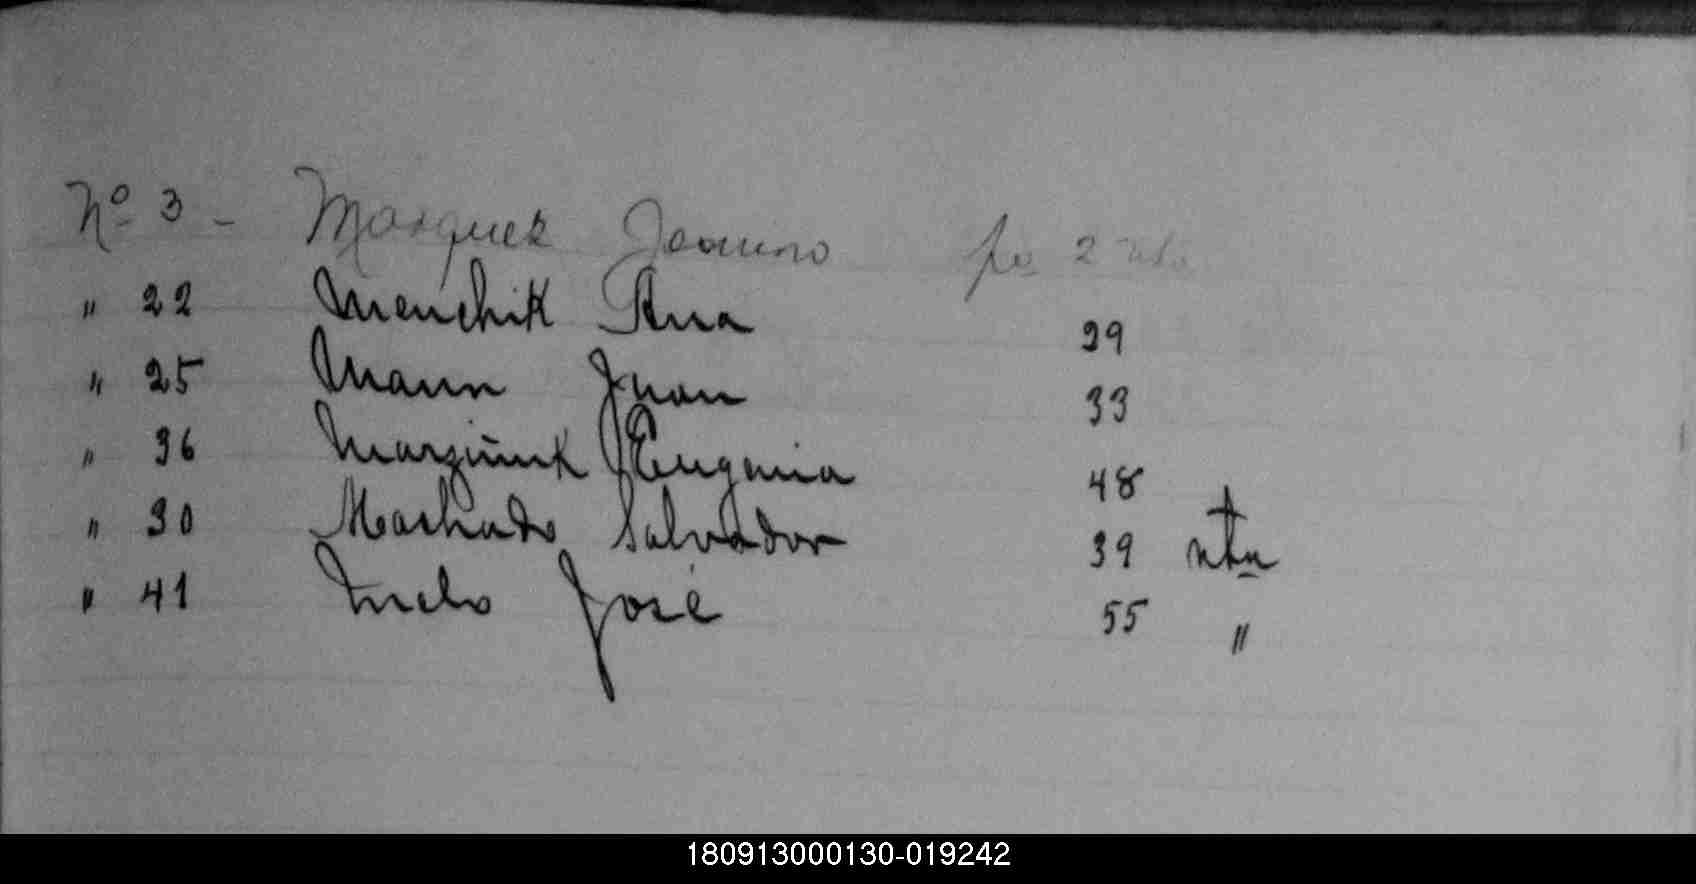 Nº 3 - Marquez
" 22 Menchik Ana 29
" 25 Mann Juan 33
" 36 Eugenia 48
" 30 Machado Salvador 39
" 41 Melo José 55 "
180913000130-019242